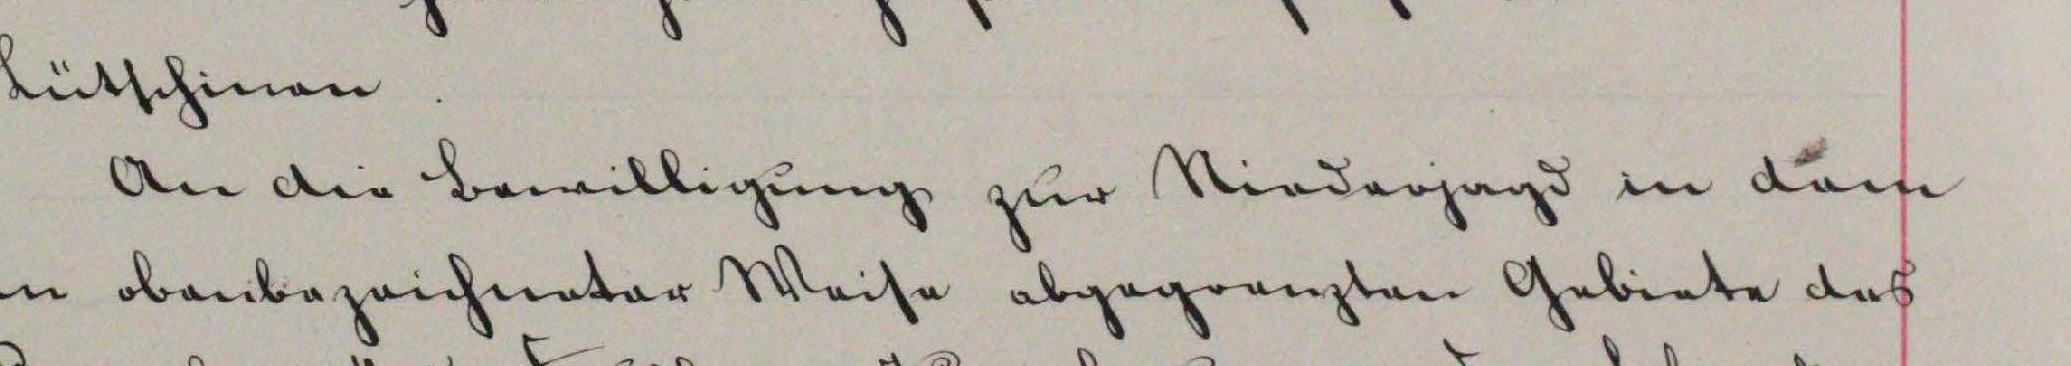 Lütschinen.
An die Bewilligung zur Niederjagd in dem
in obenbezeichneter Weise abgegrenzten Gebiete des